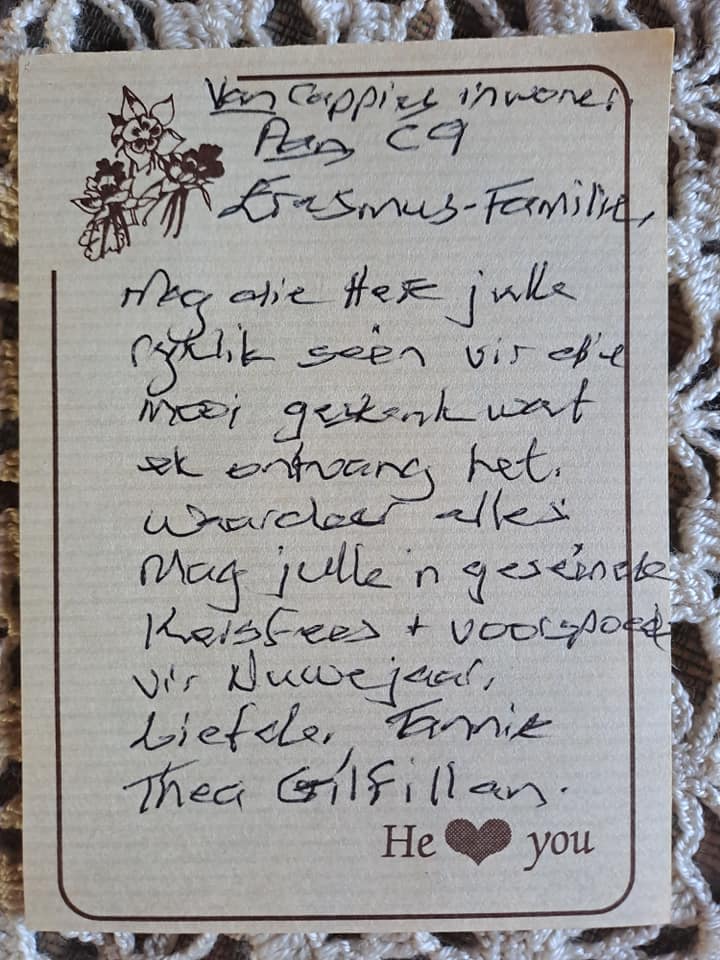 Van Cappies inwoner
Aan C9
Erasmus-Familie,
Mag die Here julle
ryklik seën vir die
mooi geskenk wat
ek ontvang het.
Waardeer alles
Mag julle 'n geseënde
Kersfees + voorspoed
vir Nuwejaar,
Liefde, Tannie
Thea Gilfillan.
He ♥ you